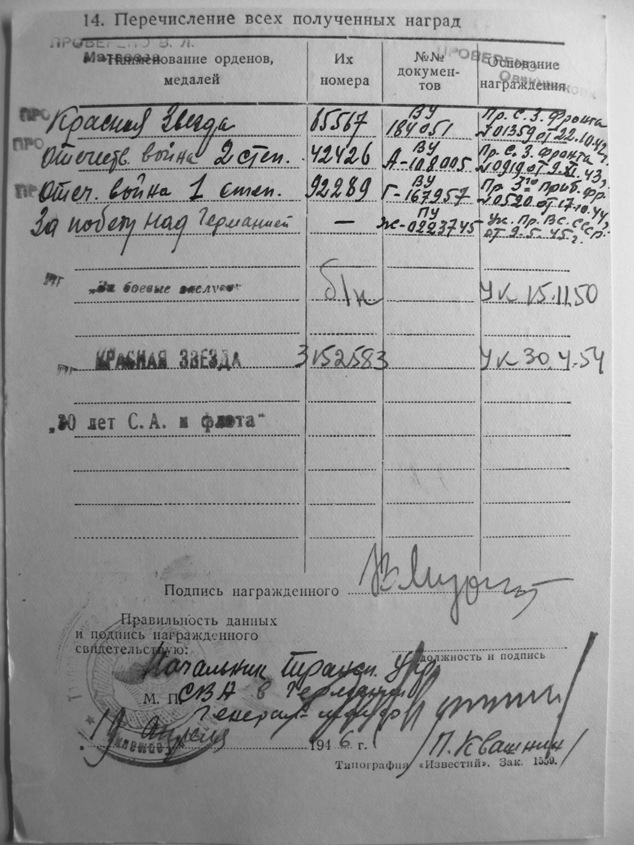 14. Перечисление всех полученных наград
ПРОВЕРЕНО В. Л.
ПРОВЕРЕНО
Наименование орденов, медалей
Их номера
№№ документов
Основание награждения
Красная Звезда 65567 ВУ 184051 Пр. С. З. Фронта №01359 от 22.10.42
Отечеств. война 2 степ. 42426 ВУ А-108005 Пр. С. З. Фронта №0919 от 9.
Отеч. война 1 степ. 92289 ВУ Г-167957 Пр. 3го Приб. фр. №0520 от 17.10.44
За победу над Германией — ПУ Ж-0223745 Ук. Пр. ВС. СССР. от 9.5.45г.
„За боевые заслуги" б/н УК 15.11.50
КРАСНАЯ ЗВЕЗДА 3152583 УК 30.4.54
„30 лет С. А. и флота"
Подпись награжденного
Правильность данных
и подпись награжденного
свидетельствую:
должность и подпись
Начальник Трансп. Упр.
М. П. СВА в Германии
Генерал-майор
19 Апреля 1946 г.
/П. Квашнин/
Типография «Известий». Зак. 1559.